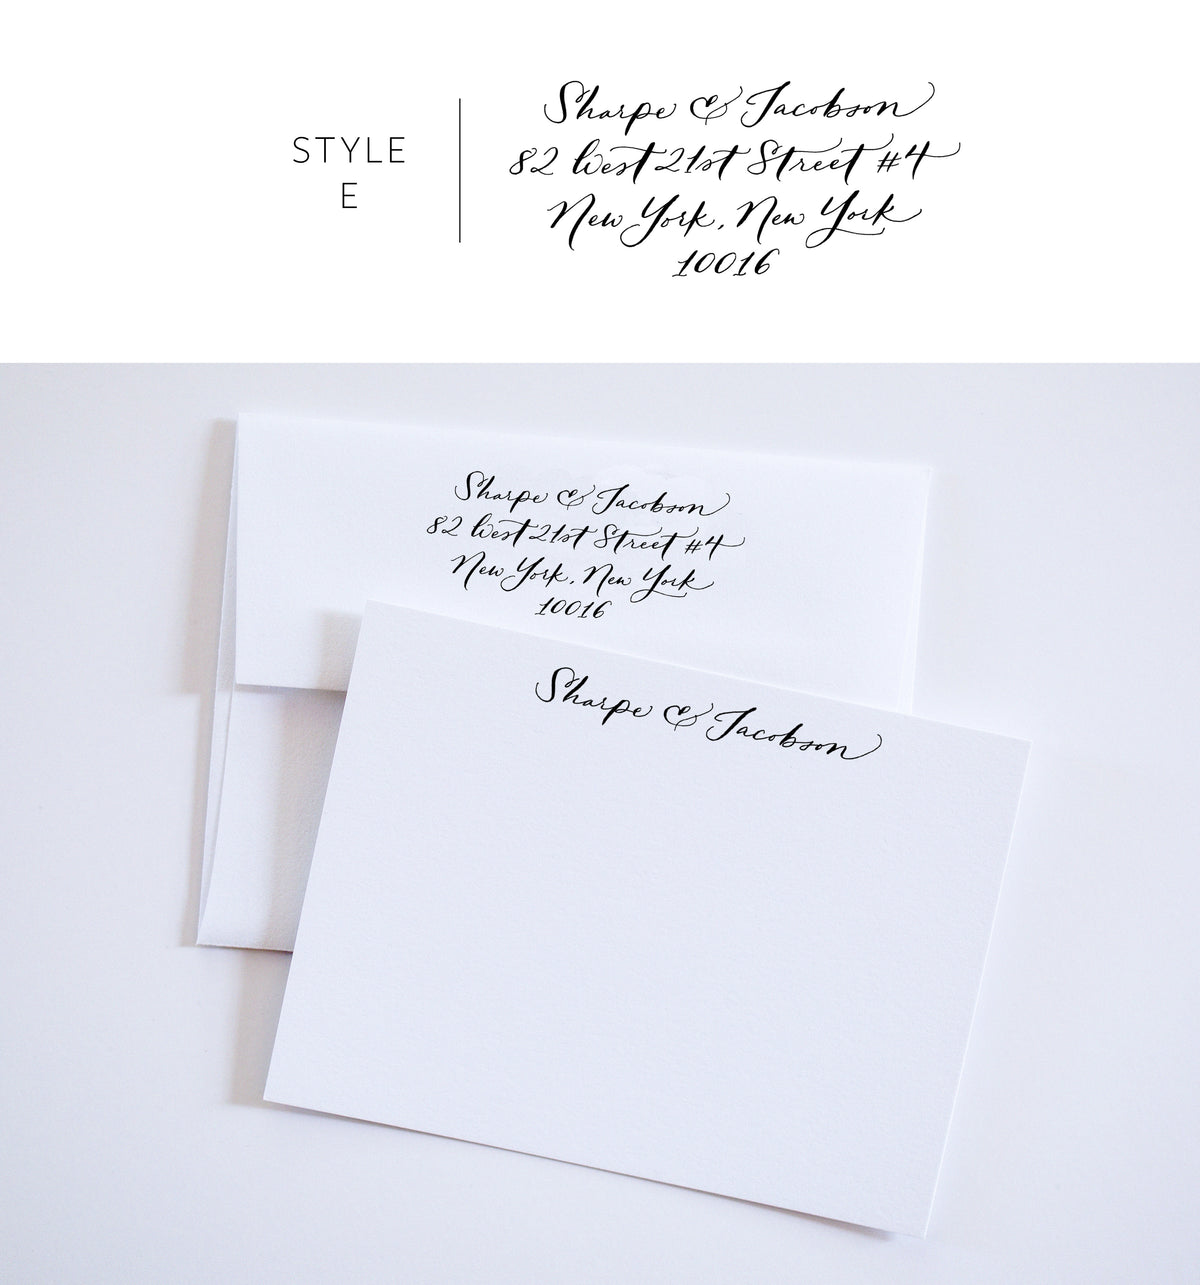 STYLE
E
Sharpe & Jacobson
82 West 21st Street #4
New York, New York
10016
Sharpe & Jacobson
82 West 21st Street #4
New York, New York
10016
Sharpe & Jacobson